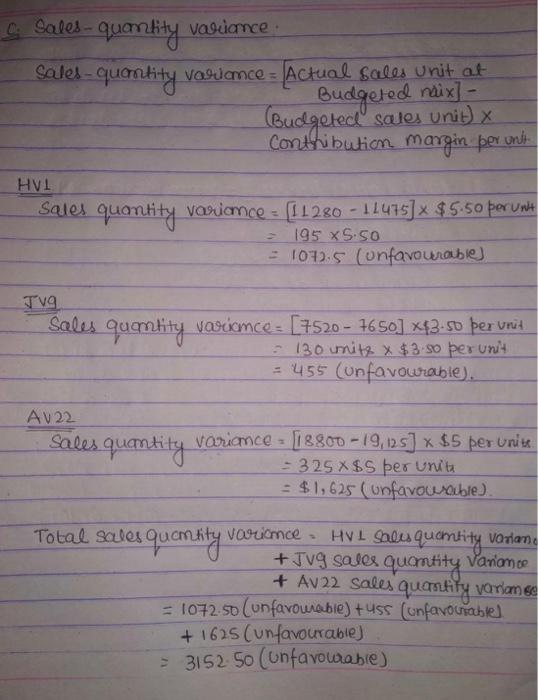 C. Sales-quantity variance.
Sales-quantity variance = [Actual sales unit at
Budgeted mix] -
(Budgeted sales unit) ×
Contribution margin per unit.
HV1
Sales quantity variance = [11280 - 11475] × $5.50 per unit
= 195 × 5.50
= 1072.5 (unfavourable)
JV9
Sales quantity variance = [7520 - 7650] × $3.50 per unit
= 130 units × $3.50 per unit
= 455 (unfavourable).
AV22
Sales quantity variance = [18800 - 19,125] × $5 per units
= 325 × $5 per units
= $1,625 (unfavourable).
Total sales quantity variance = HV1 sales quantity variance
+ JV9 sales quantity variance
+ AV22 sales quantity variance
= 1072.50 (unfavourable) + 455 (unfavourable)
+ 1625 (unfavourable)
= 3152.50 (unfavourable)